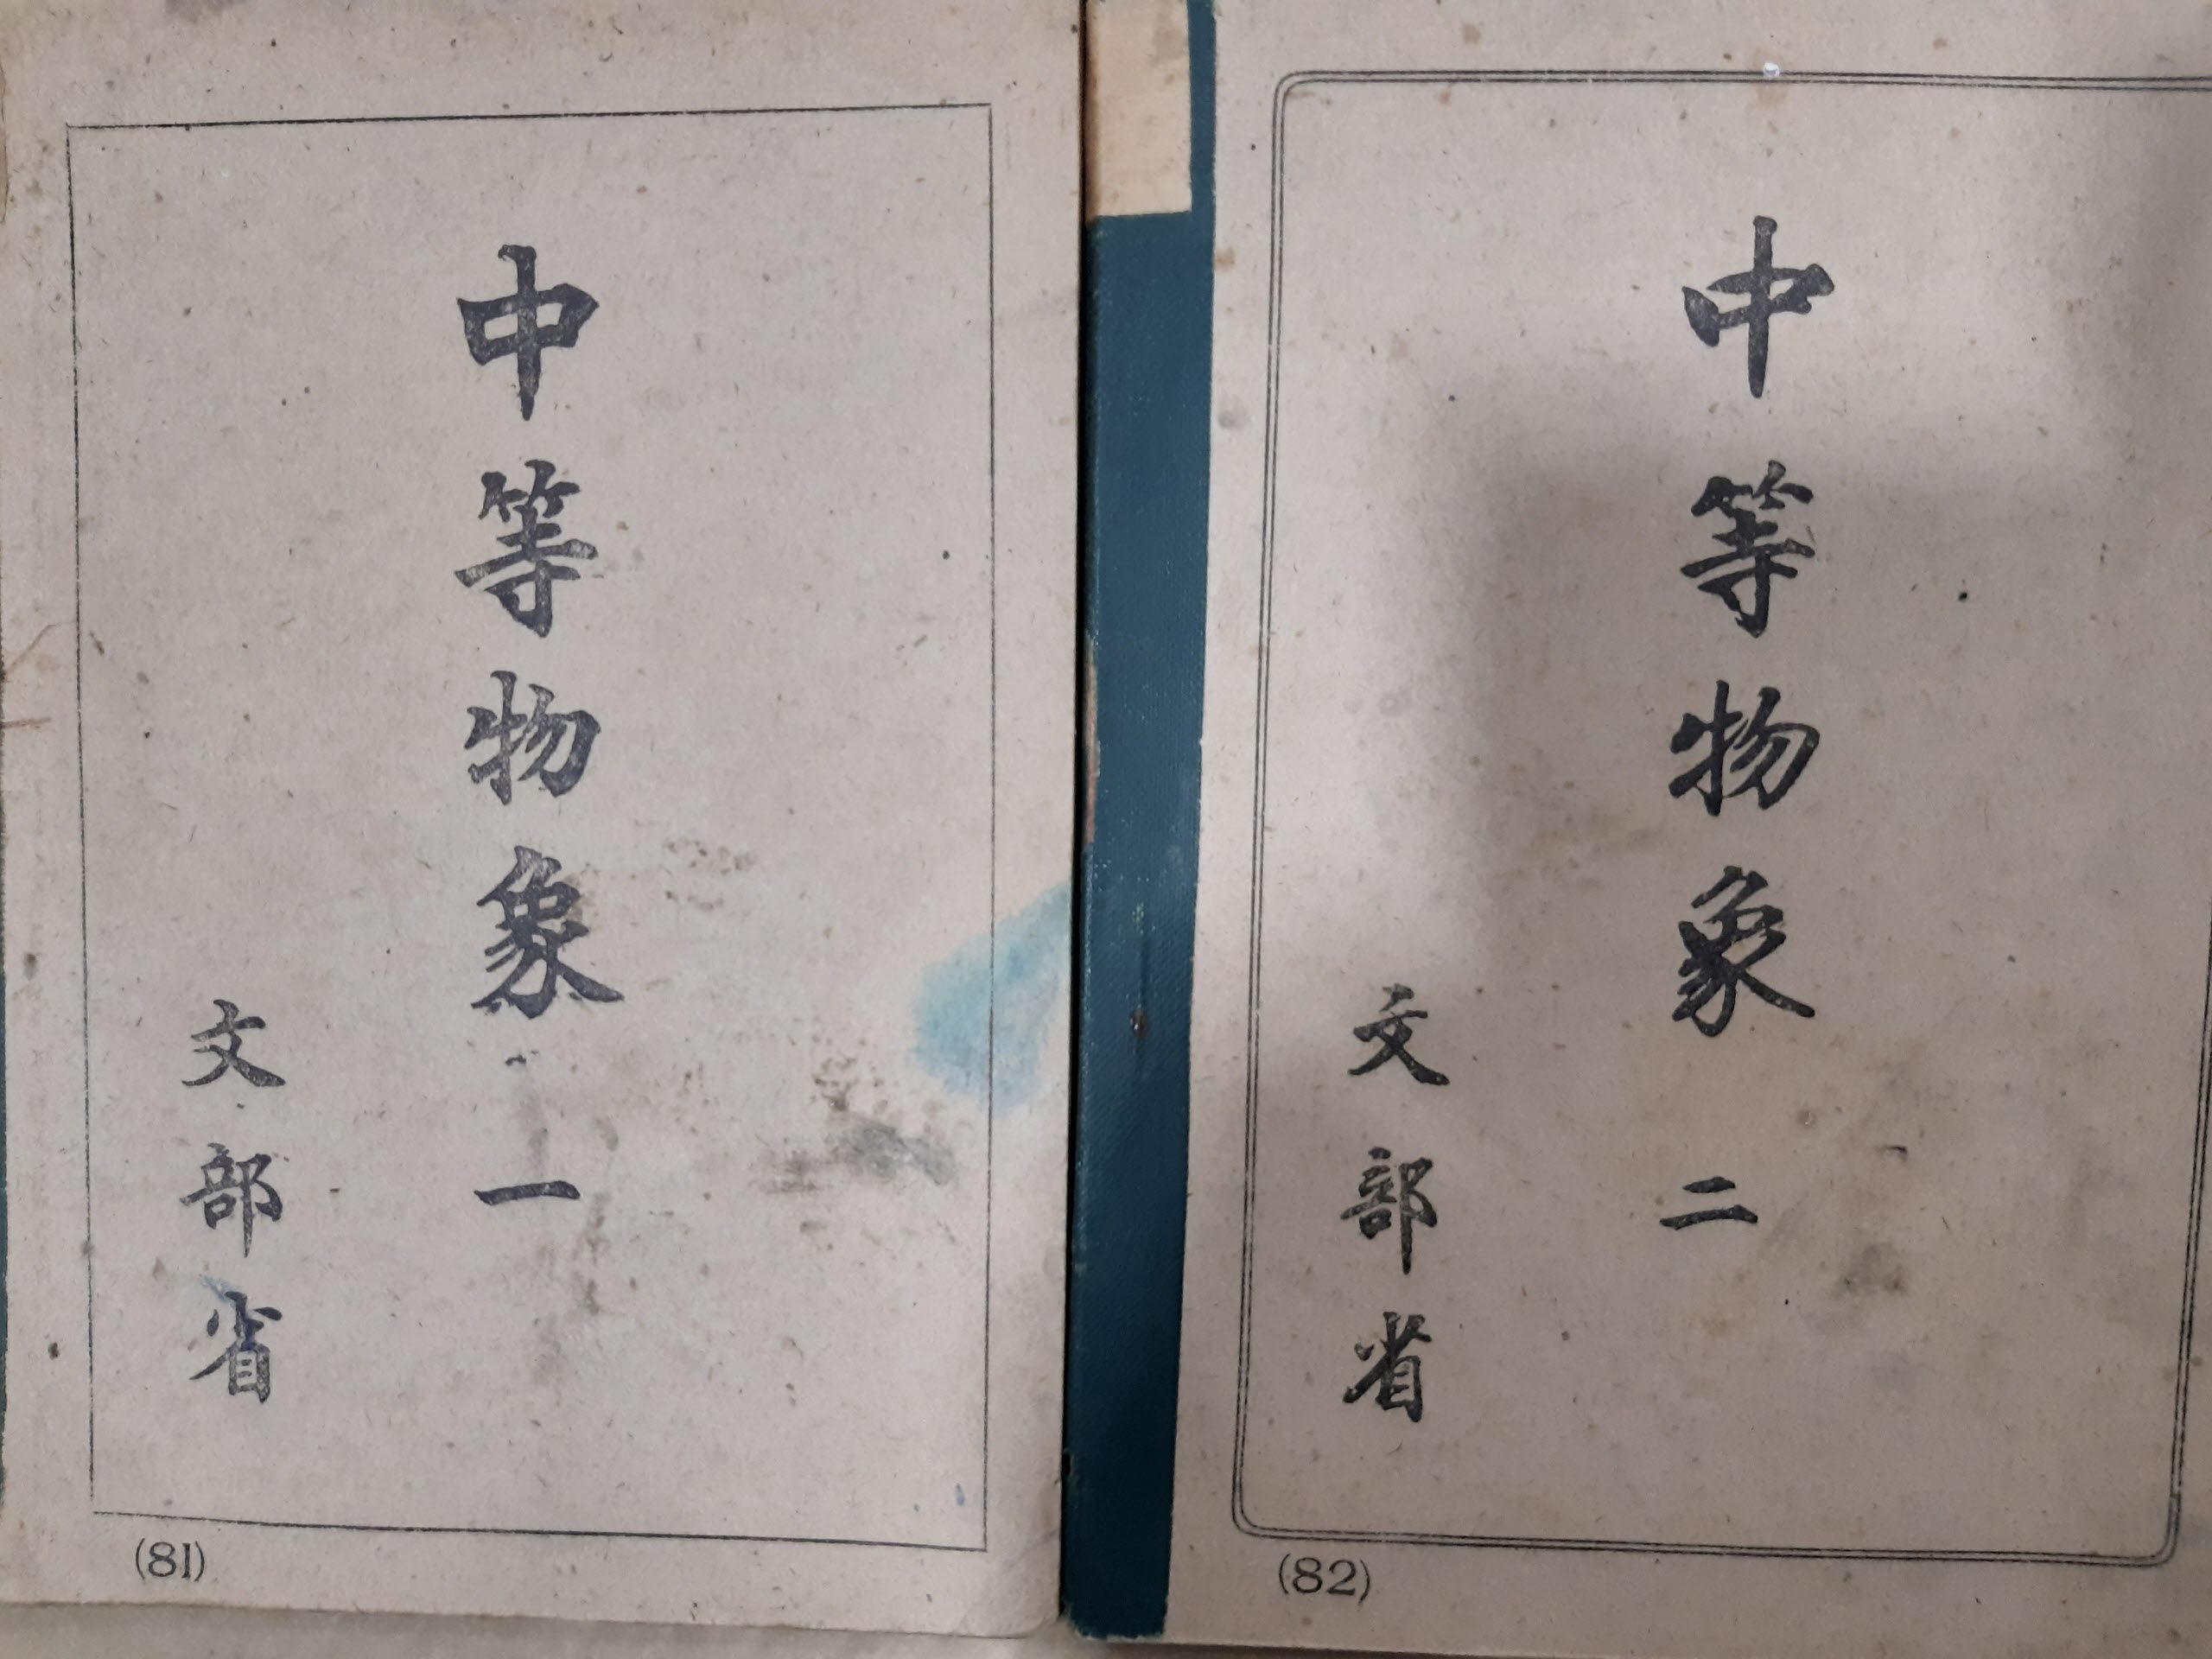 中等物象 一
文部省
(81)
中等物象 二
文部省
(82)